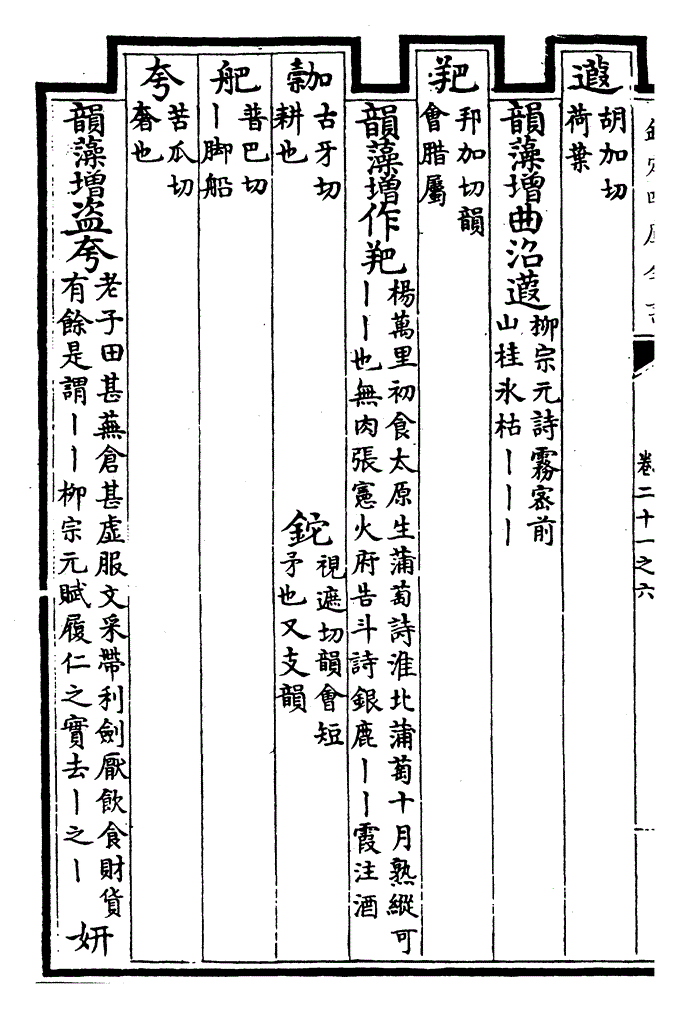 欽定四庫全書
卷二十一之六
蕸
胡加切
荷葉
韻藻增曲沼蕸
柳宗元詩霧密前
山桂氷枯丨丨丨
羓
邦加切韻
會腊屬
韻藻增作羓
楊萬里初食太原生蒲萄詩淮北蒲萄十月熟縱可
丨丨也無肉張憲火府告斗詩銀鹿丨丨霞注酒
古牙切
耕也
鉈
視遮切韻會短
矛也又支韻
舥
普巴切
丨脚船
夸
苦瓜切
奢也
韻藻增盗夸
老子田甚蕪倉甚虛服文采帶利劍厭飲食財貨
有餘是謂丨丨柳宗元賦履仁之實去丨之丨
姸